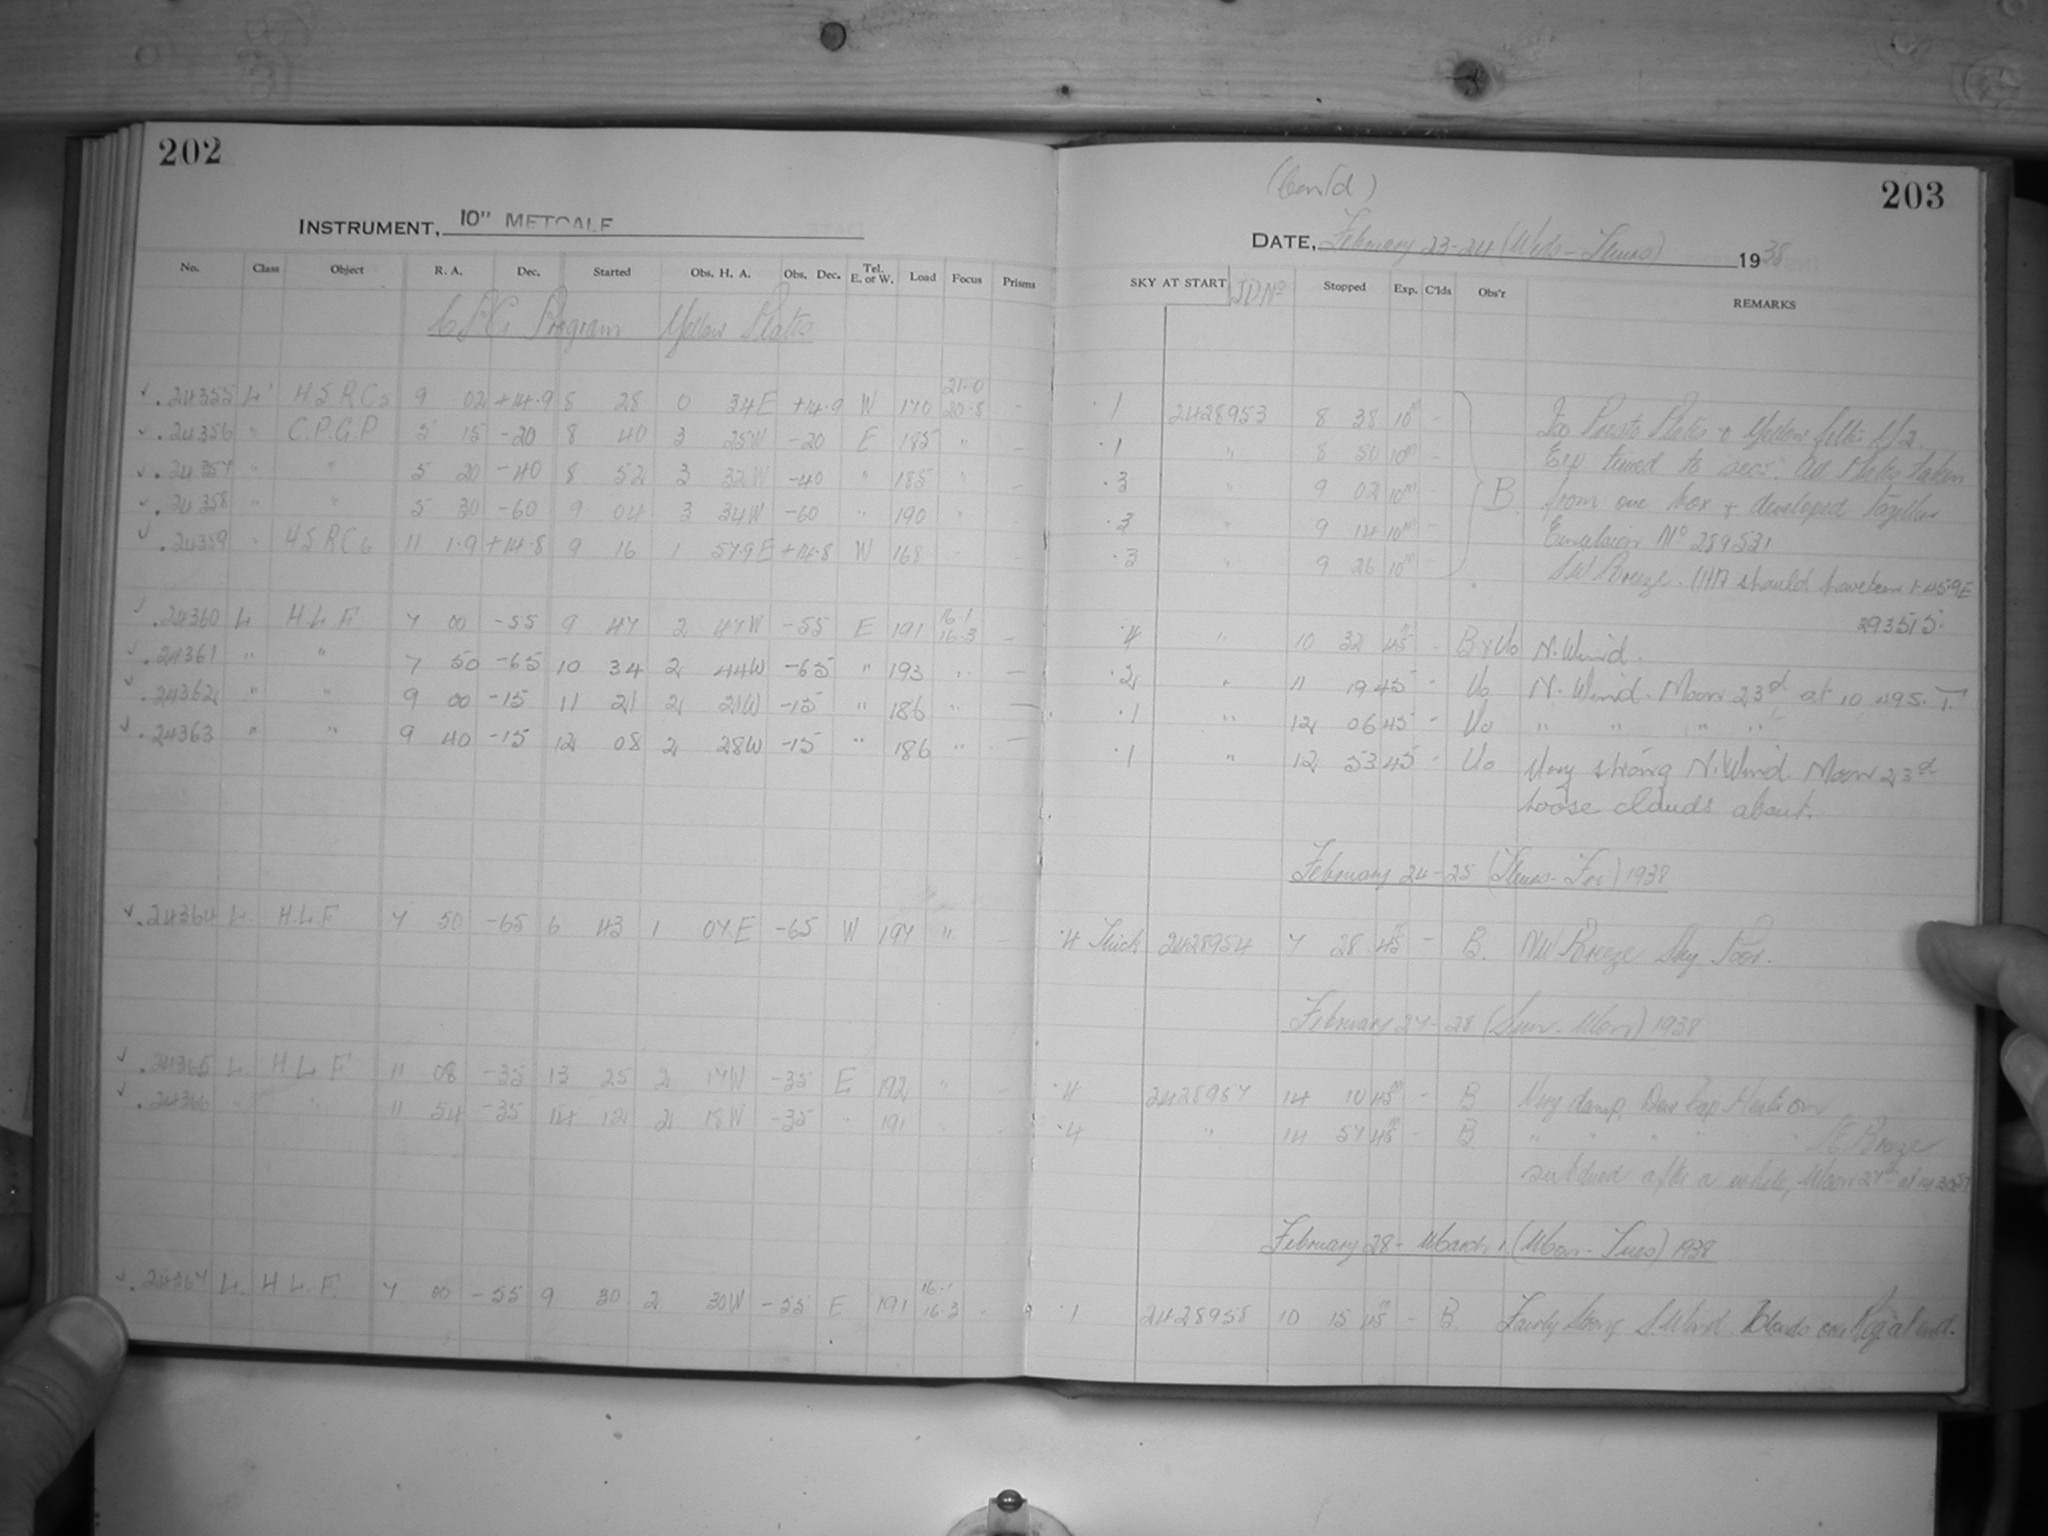 202
INSTRUMENT, 10" METCALF
No. Class Object R. A. Dec. Started Obs. H. A. Obs. Dec. Tel. E. or W. Load Focus Prisms
Program Yellow Plates
21.0
24355 L' HSRC5 9 02 +14.9 8 28 0 34E +14.9 W 170 20.8 -
24356 " C.P.G.P 5 15 -20 8 40 3 25W -20 E 185 " -
24357 " " 5 20 -40 8 52 3 32W -40 " 185 " -
24358 " " 5 30 -60 9 04 3 34W -60 " 190 "
24359 " HSRC6 11 1.9 +14.8 9 16 1 57.9E +14.8 W 168
16.1
24360 L H.L.F 7 00 -55 9 47 2 47W -55 E 191 16.3 -
24361 " " 7 50 -65 10 34 2 44W -65 " 193 " -
24362 " " 9 00 -15 11 21 2 21W -15 " 186 " -
24363 " " 9 40 -15 12 08 2 28W -15 " 186 " -
24364 L. H.L.F 7 50 -65 6 43 1 07E -65 W 197 " -
24365 L. H.L.F 11 08 -35 13 25 2 17W -35 E 192 " -
24366 " " 11 54 -35 14 12 2 18W -35 " 191
16.1
24367 L. H.L.F. 7 00 -55 9 30 2 30W -55 E 191 16.3 -
(Con'd)
203
DATE, February 23-24 (Weds-Thurs) 1938
SKY AT START JD No Stopped Exp. C'lds Obs'r REMARKS
.1 2428953 8 38 10m - Iso Presto Plates + Yellow filter
.1 " 8 50 10m - Exp timed to secs. All Plates taken
.3 " 9 02 10m - B. from one box & developed together
.3 " 9 14 10m - Emulsion No 289531
.3 " 9 26 10m - SW Breeze. HA should have been 1 45.9E
293515.
.4 " 10 32 45m - B+Uo N. Wind.
.2 " 11 19 45 - Uo N. Wind. Moon 23d at 10 49 S.T.
.1 " 12 06 45 - Uo " " " "
.1 " 12 53 45 - Uo Very strong N. Wind. Moon 23d
Loose clouds about.
February 24-25 (Thurs-Fri) 1938
.4 Thick 2428954 7 28 45m - B. NW Breeze Sky Poor.
February 27-28 (Sun-Mon) 1938
.4 2428957 14 10 45m - B Very damp, Dew Cap Heater on
.4 " 14 57 45m - B " " " " Breeze
after a while, Moon 27th at 14
February 28- March 1 (Mon-Tues) 1938
.1 2428958 10 15 45m - B. Fairly Strong S. Wind. Clouds over Reg. at end.